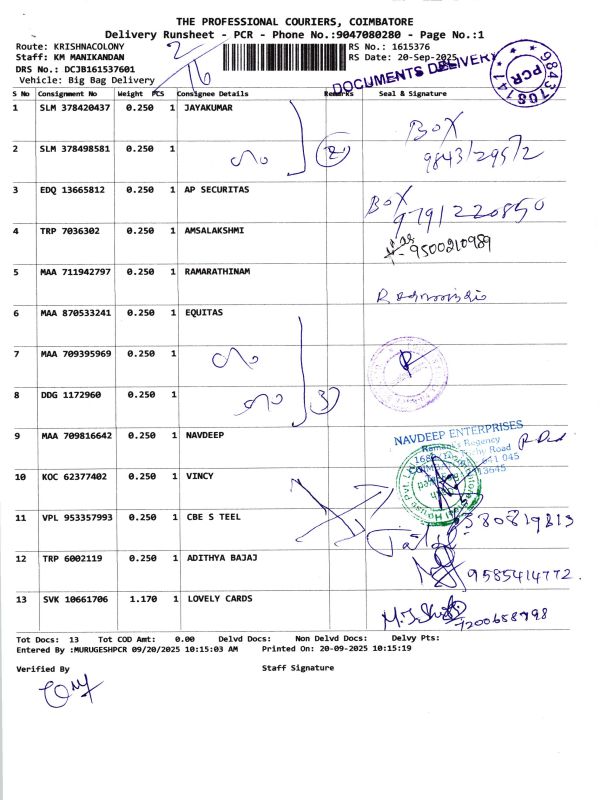 THE PROFESSIONAL COURIERS, COIMBATORE
Delivery Runsheet - PCR - Phone No.:9047080280 - Page No.:1
Route: KRISHNACOLONY RS No.: 1615376
Staff: KM MANIKANDAN RS Date: 20-Sep-2025
DRS No.: DCJB161537601
Vehicle: Big Bag Delivery
DOCUMENTS DELIVERY
PCR
S No Consignment No Weight PCS Consignee Details Remarks Seal & Signature
1 SLM 378420437 0.250 1 JAYAKUMAR
BOX
2 SLM 378498581 0.250 1
(2)
3 EDQ 13665812 0.250 1 AP SECURITAS
BOX
9791220850
4 TRP 7036302 0.250 1 AMSALAKSHMI
9500210989
5 MAA 711942797 0.250 1 RAMARATHINAM
6 MAA 870533241 0.250 1 EQUITAS
7 MAA 709395969 0.250 1
8 DDG 1172960 0.250 1
3
9 MAA 709816642 0.250 1 NAVDEEP
NAVDEEP ENTERPRISES
Regency
Road
641 045
10 KOC 62377402 0.250 1 VINCY
11 VPL 953357993 0.250 1 CBE S TEEL
12 TRP 6002119 0.250 1 ADITHYA BAJAJ
9585414772.
13 SVK 10661706 1.170 1 LOVELY CARDS
7200658798
Tot Docs: 13 Tot COD Amt: 0.00 Delvd Docs: Non Delvd Docs: Delvy Pts:
Entered By :MURUGESHPCR 09/20/2025 10:15:03 AM Printed On: 20-09-2025 10:15:19
Verified By Staff Signature